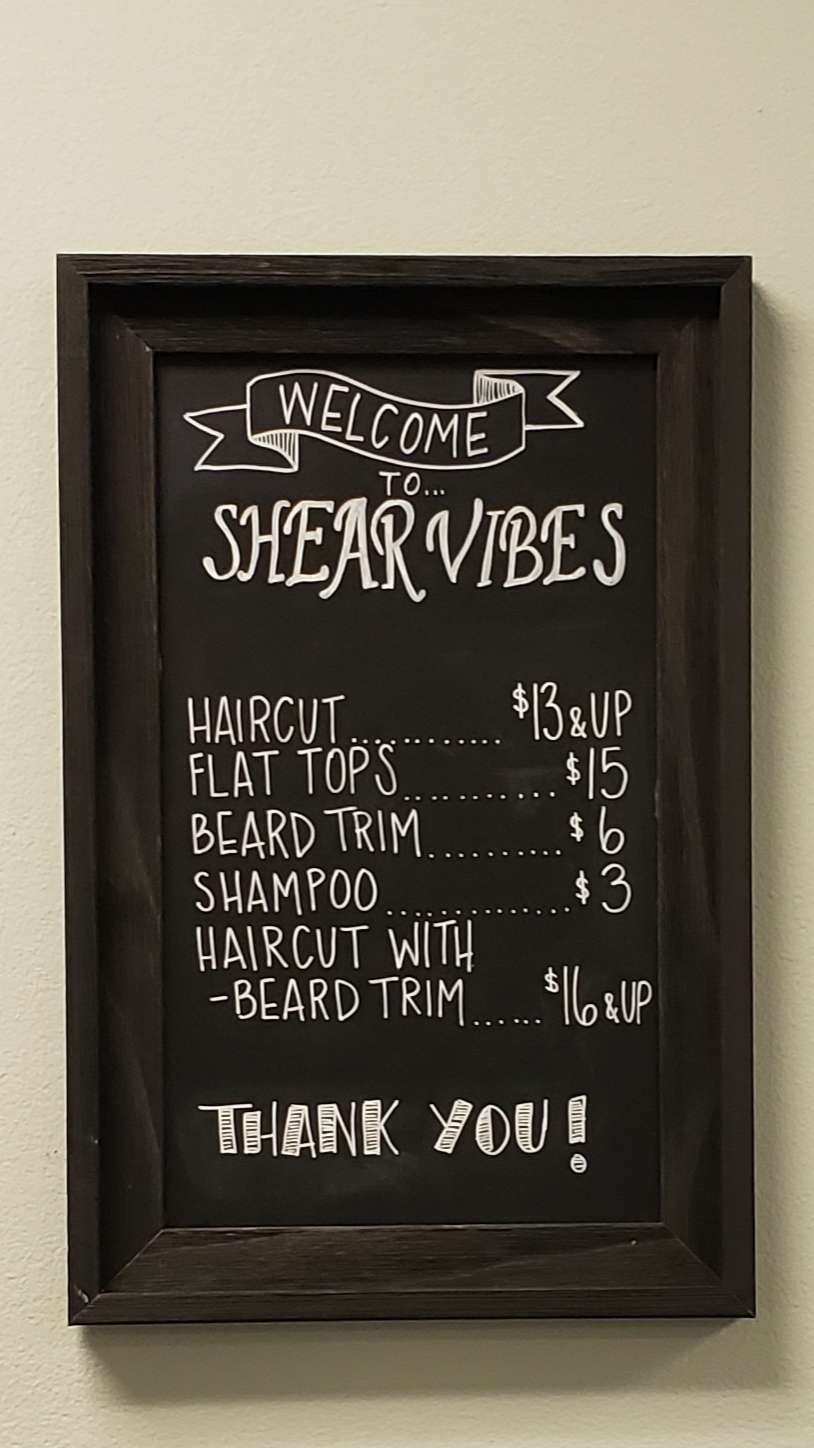 WELCOME
TO...
SHEAR VIBES
HAIRCUT............ $13 & UP
FLAT TOPS........... $15
BEARD TRIM.......... $6
SHAMPOO.............. $3
HAIRCUT WITH
-BEARD TRIM...... $16 & UP
THANK YOU!